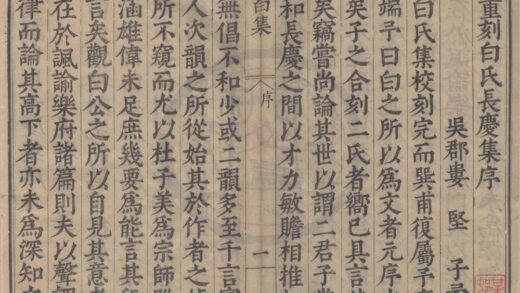 重刻白氏長慶集序
吳郡婁 堅 子
白氏集校刻完而巽甫復屬予
端予曰白之所以爲文者元序
矣予之合刻二氏者嚮已具言
矣竊嘗尚論其世以謂二君子
和長慶之間以才力敏贍相推
白集 序 一
無倡不和少或二韻多至千言
人次韻之所從始其於作者之
所不窺而尤以杜子美爲宗師
涵雄偉未足庶幾要爲能言其
言矣觀白公之所以自見其意
在於諷諭樂府諸篇則夫以聲
律而論其高下者亦未爲深知